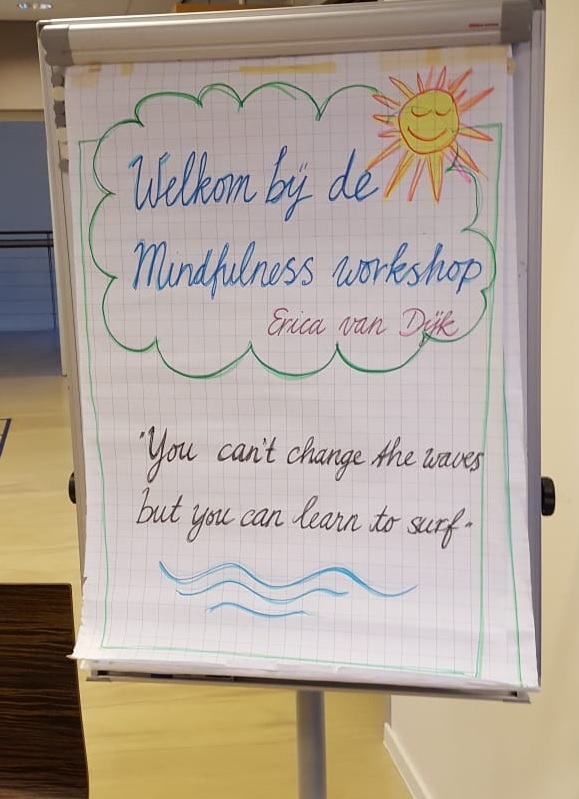 Welkom bij de
Mindfulness workshop
Erica van Dijk
"You can't change the waves
but you can learn to surf"